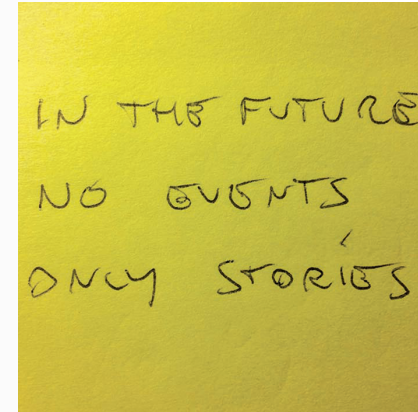 IN THE FUTURE
NO EVENTS
ONLY STORIES